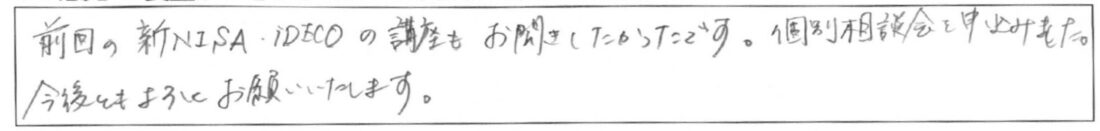 前回の新NISA・iDECOの講座もお聞きしたかったです。個別相談会を申込みました。
今後ともよろしくお願いいたします。